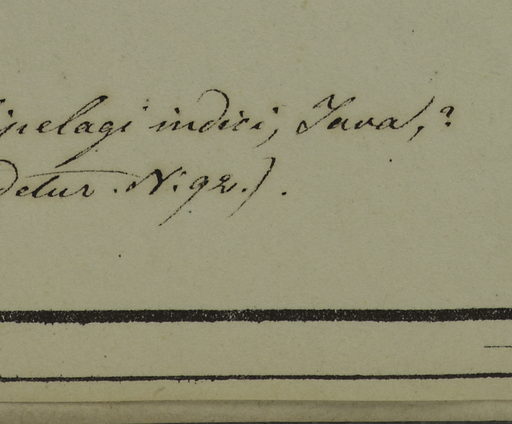 ipelagi indici, Java,?
detur. N. 92.).